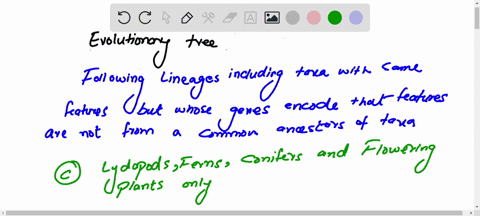 Evolutionary tree
Following Lineages including taxa with same
features but whose genes encode that features
are not from a common ancestors of taxa
C Lydopods, Ferns, Conifers and Flowering
plants only